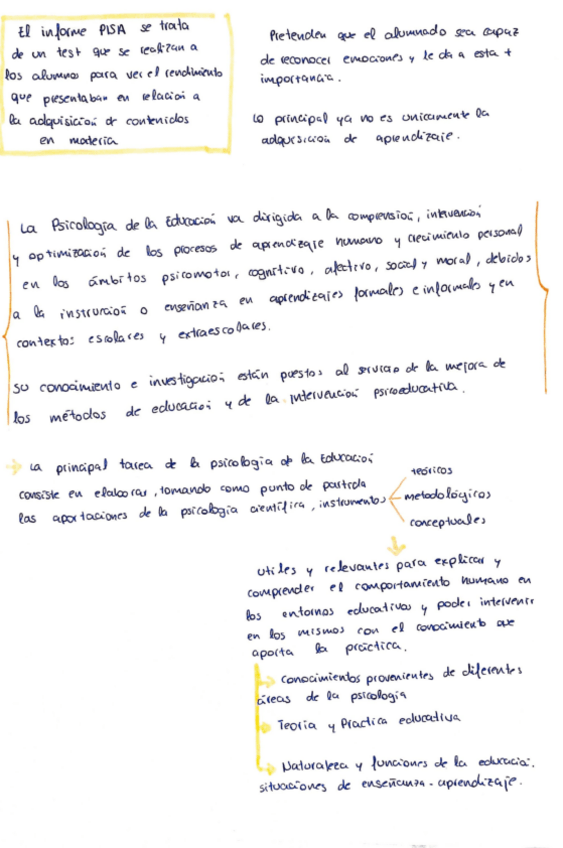 El informe PISA se trata
de un test que se realizan a
los alumnos para ver el rendimiento
que presentaban en relación a
la adquisición de contenidos
en materia
Pretenden que el alumnado sea capaz
de reconocer emociones y le da a esta +
importancia.
Lo principal ya no es unicamente la
adquisición de aprendizaje.
La Psicología de la Educación va dirigida a la comprensión, intervención
y optimización de los procesos de aprendizaje humano y crecimiento personal
en los ámbitos psicomotor, cognitivo, afectivo, social y moral, debidos
a la instrucción o enseñanza en aprendizajes formales e informales y en
contextos escolares y extraescolares.
Su conocimiento e investigación están puestos al servicio de la mejora de
los métodos de educación y de la intervención psicoeducativa.
La principal tarea de la psicología de la Educación
consiste en elaborar, tomando como punto de partida
las aportaciones de la psicología científica, instrumentos
teóricos
metodológicos
conceptuales
utiles y relevantes para explicar y
comprender el comportamiento humano en
los entornos educativos y poder intervenir
en los mismos con el conocimiento que
aporta la práctica.
Conocimientos provenientes de diferentes
áreas de la psicología
Teoria y Practica educativa
Naturaleza y funciones de la educación.
situaciones de enseñanza-aprendizaje.